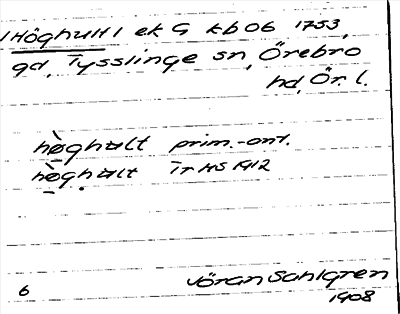 /Höghult/ ek G kb 06 1753,
gd, Tysslinge sn, Örebro
hd, Ör. l.
hø̀ghult prim.-ant.
hø̀ghult Tr HS 1912
Jöran Sahlgren
6 1908